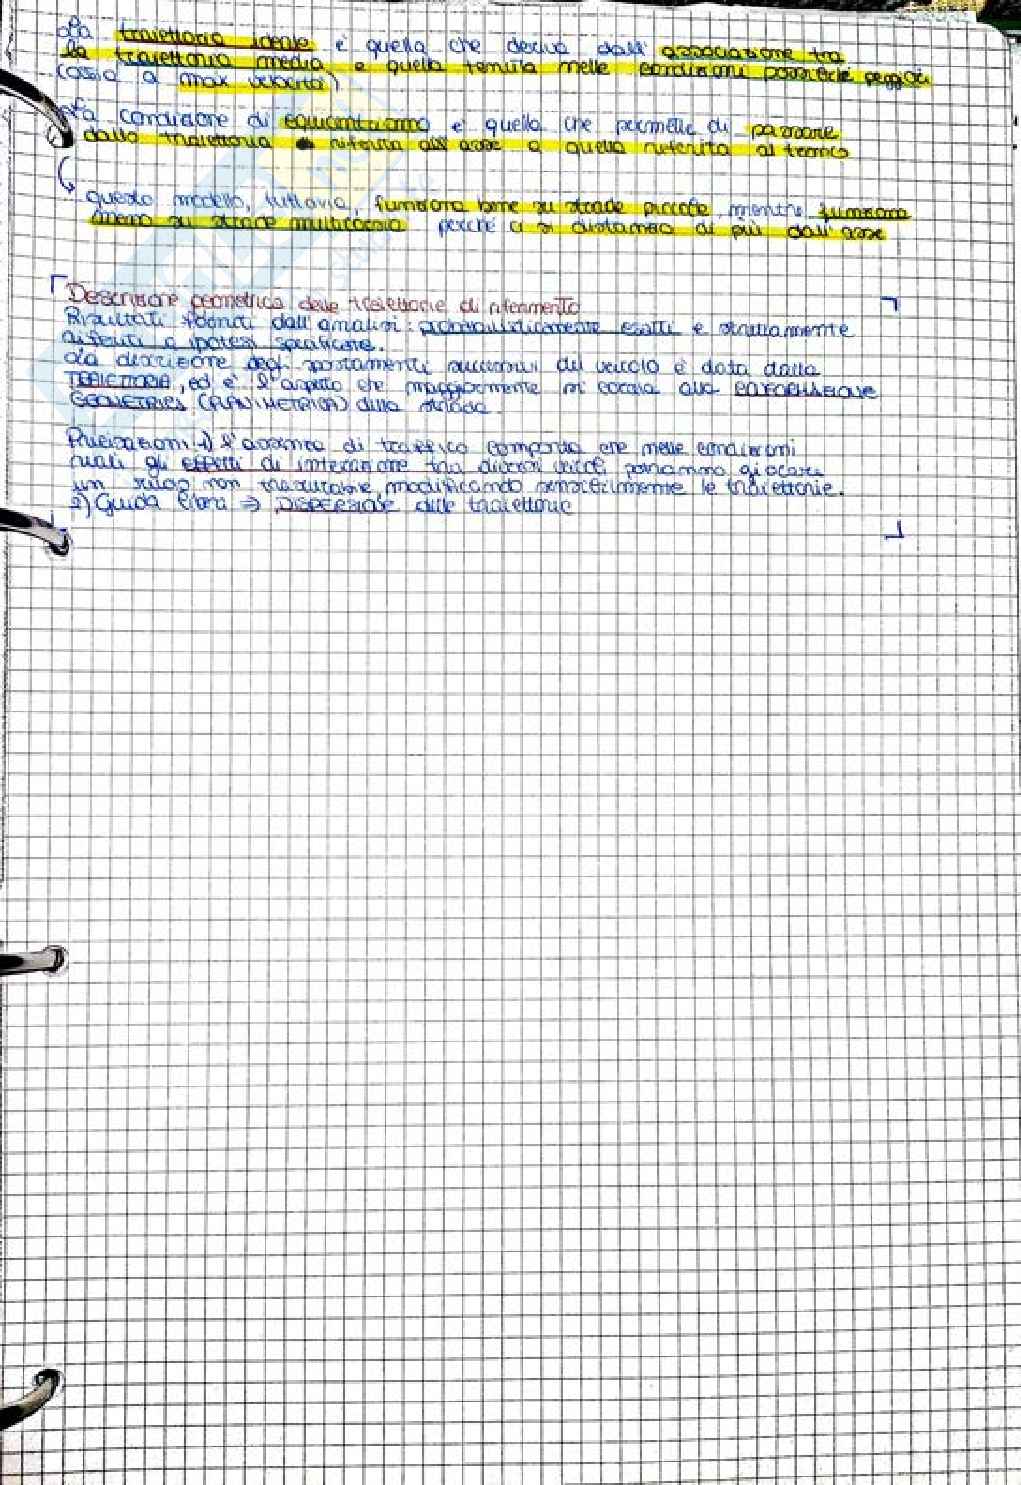 La traiettoria ideale è quella che deriva dall'associazione tra
la traiettoria media e quella tenuta nelle condizioni possibili peggiori
(ossia a max velocità)
La condizione di equicantuanno è quella che permette di passare
dalla traiettoria riferita all'asse a quella riferita al
questo modello, tuttavia, funziona bene su strade piccole mentre funziona
meno su strade multicorsia perché ci si distanzia di più dall'asse
Descrizione geometrica delle traiettorie di riferimento
Risultati forniti dall'analisi: probabilisticamente esatti e strettamente
riferiti a ipotesi specifiche.
La descrizione degli spostamenti successivi del veicolo è data dalla
TRAIETTORIA, ed è l'aspetto che maggiormente si associa alla CONFORMAZIONE
GEOMETRICA (PLANIMETRICA) della strada.
Precisazioni: 1) l'assenza di traffico comporta che nelle condizioni
reali gli effetti di interazione tra diversi veicoli possiamo giocare
un ruolo non trascurabile modificando sensibilmente le traiettorie.
2) Guida libera ⇒ DISPERSIONE delle traiettorie